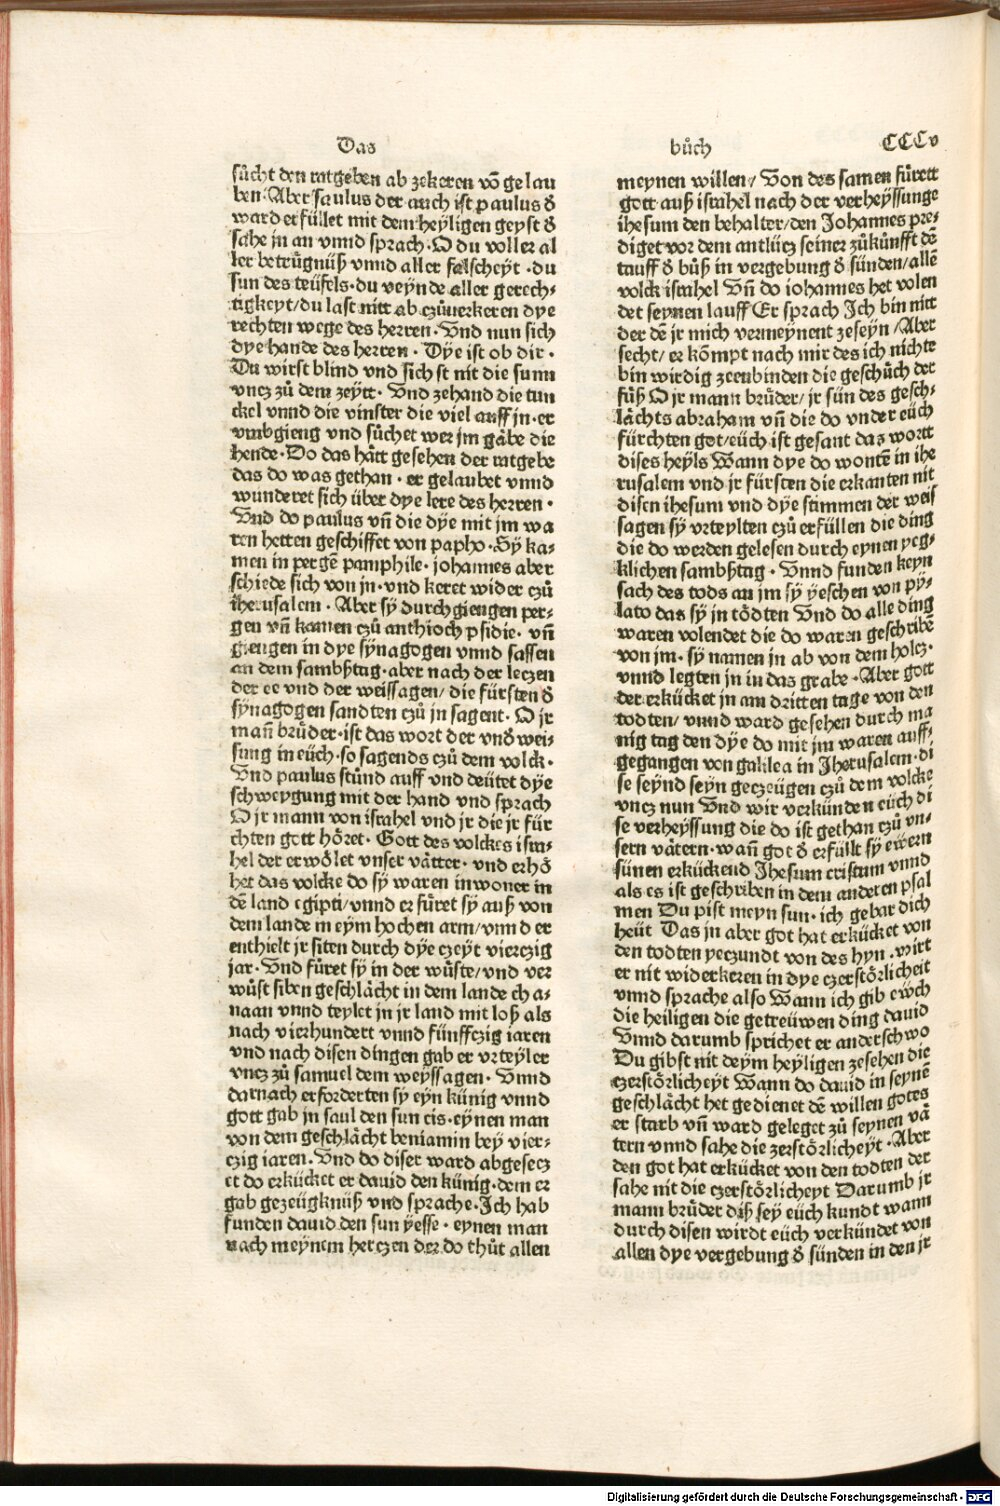 Das
bůch
CCCv
sůcht den ratgeben ab zekeren vō gelau
ben· Aber saulus der auch ist paulus ð
ward erfüllet mit dem heyligen geyst ð
sahe in an vnnd sprach· O du voller al
ler betrügnüß vnnd aller falscheyt· du
sun des teüfels· du veynde aller gerech⸗
tigkeyt/du last nitt ab czůuerkeren dye
rechten wege des herren· Vnd nun sich
dye hande des herren· Dÿe ist ob dir·
Du wirst blind vnd sichst nit die sunn
vncz zů dem zeytt· Vnd zehand die tun
ckel vnnd die vinster die viel auff jn· er
vmbgieng vnd sůchet wer jm gäbe die
hende· Do das hätt gesehen der ratgebe
das do was gethan· er gelaubet vnnd
wunderet sich über dye lere des herren·
Vnd do paulus vñ die dÿe mit jm wa
ren hetten geschiffet von papho· Sÿ ka⸗
men in pergē pamphile· johannes aber
schiede sich von jn· vnd keret wider czů
iherusalem· Aber sÿ durchgiengen per⸗
gen vñ kamen czů anthioch psidie· vñ
giengen in dye sÿnagogen vnnd sassen
an dem sambßtag· aber nach der leczen
der ee vnd der weissagen/ die fürsten ð
sÿnagogen sandten czů jn sagent· O jr
mañ brüder· ist das wort der vnð wei⸗
sung in eüch· so sagends czů dem volck·
Vnd paulus stůnd auff vnd deütet dÿe
schweygung mit der hand vnd sprach
O jr mann von israhel vnd jr die jr für
chten gott höret· Gott des volckes isra⸗
hel der erwölet vnser vätter· vnd erhö
het das volcke do sÿ waren inwoner in
dē land egipti/vnnd er füret sÿ auß von
dem lande in eym hochen arm/vnnd er
enthielt jr siten durch dÿe czeyt vierczig
jar· Vnd füret sÿ in der wüste/vnd ver
wůst siben geschlächt in dem lande cha⸗
naan vnnd teylet jn jr land mit loß als
nach vierhundert vnnd fünffczig iaren
vnd nach disen dingen gab er vrteyler
vncz zů samuel dem weyssagen· Vnnd
darnach erforderten sy eyn künig vnnd
gott gab jn saul den sun cis· eynen man
von dem geschlächt beniamin bey vier⸗
czig iaren· Vnd do diser ward abgesecz
et do erkücket er dauid den künig· dem er
gab gezeügknüß vnd sprache· Ich hab
funden dauid den sun ÿesse· eynen man
nach meynem herczen der do thůt allen
meynen willen/ Von des samen fürett
gott auß israhel nach der verheÿssunge
ihesum den behalter/den Johannes pre⸗
diget vor dem antlücz seiner zůkünfft dē
tauff ð bůß in vergebung ð sünden/allē
volck israhel Vñ do iohannes het volen
det seynen lauff Er sprach Ich bin nitt
der dē jr mich vermeynent zeseÿn/Aber
secht/ er kömpt nach mir des ich nichte
bin wirdig zeenbinden die geschůch der
füß O jr mann brüder/ jr sün des gesch⸗
lächts abraham vñ die do vnder eüch
fürchten got/eüch ist gesant daz wortt
dises heÿls Wann dye do wontē in ihe
rusalem vnd jr fürsten die erkanten nit
disen ihesum vnd dÿe stimmen der weis
sagen sÿ vrteylten czů erfüllen die ding
die do werden gelesen durch eynen yeg⸗
klichen sambßtag· Vnnd funden keyn
sach des tods an jm sÿ ÿeschen von pÿ⸗
lato das sÿ jn tödten Vnd do alle ding
waren volendet die do waren geschribē
von jm· sÿ namen jn ab von dem holcz·
vnnd legten jn in das grabe· Aber gott
der erkücket jn am dritten tage von den
todten/ vnnd ward gesehen durch ma
nig tag den dÿe do mit jm waren auff⸗
gegangen von galilea in Jherusalem· di
se seynd seyn geczeügen czů dem volcke
vncz nun Vnd wir verkünden eüch di
se verheÿssung die do ist gethan czů vn⸗
sern vätern· wañ got ð erfüllt sÿ ewern
sünen erkückend Jhesum cristum vnnd
als es ist geschriben in dem anderen psal
men Du pist meyn sun· ich gebar dich
heüt Das jn aber got hat erkücket von
den todten yeczundt von des hyn· wirt
er nit widerkeren in dye czerstörlicheit
vnnd sprache also Wann ich gib ewch
die heiligen die getreüwen ding dauid
Vnnd darumb sprichet er anderschwo
Du gibst nit deÿm heyligen zesehen die
czerstörlicheyt Wann do dauid in seynē
geschlächt het gedienet dē willen gotes
er starb vñ ward geleget zů seynen vä
tern vnnd sahe die zerstörlicheÿt· Aber
den got hat erkücket von den todten der
sahe nit die czerstörlicheyt Darumb jr
mann brüder diß sey eüch kundt wann
durch disen wirdt eüch verkündet von
allen dye vergebung ð sünden in den jr
Digitalisierung gefördert durch die Deutsche Forschungsgemeinschaft - DFG